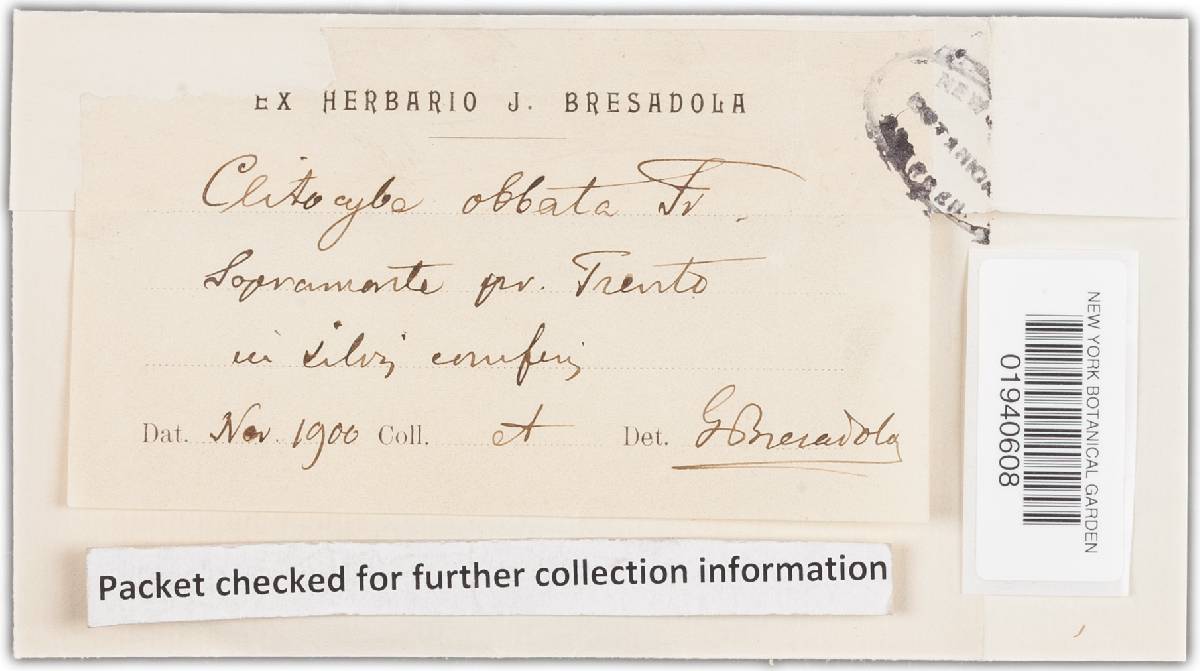 EX HERBARIO J. BRESADOLA
Clitocybe obbata Fr.
Sopramonte pr. Trento
in silvis coniferis
Dat. Nov. 1900 Coll. et Det. G Bresadola
Packet checked for further collection information
NEW
BOTANICAL
NEW YORK BOTANICAL GARDEN
01940608